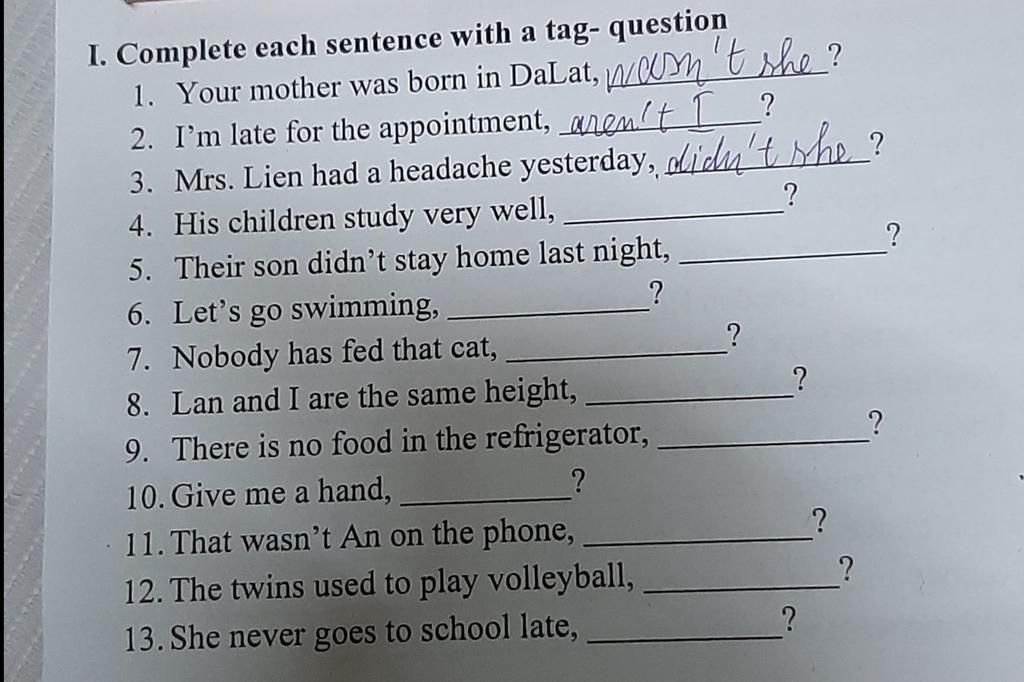 I. Complete each sentence with a tag- question
1. Your mother was born in DaLat, wasn't she ?
2. I'm late for the appointment, aren't I ?
3. Mrs. Lien had a headache yesterday, didn't she ?
4. His children study very well, ____________?
5. Their son didn't stay home last night, ____________?
6. Let's go swimming, ____________?
7. Nobody has fed that cat, ____________?
8. Lan and I are the same height, ____________?
9. There is no food in the refrigerator, ____________?
10. Give me a hand, __________?
11. That wasn't An on the phone, ____________?
12. The twins used to play volleyball, ___________?
13. She never goes to school late, ___________?